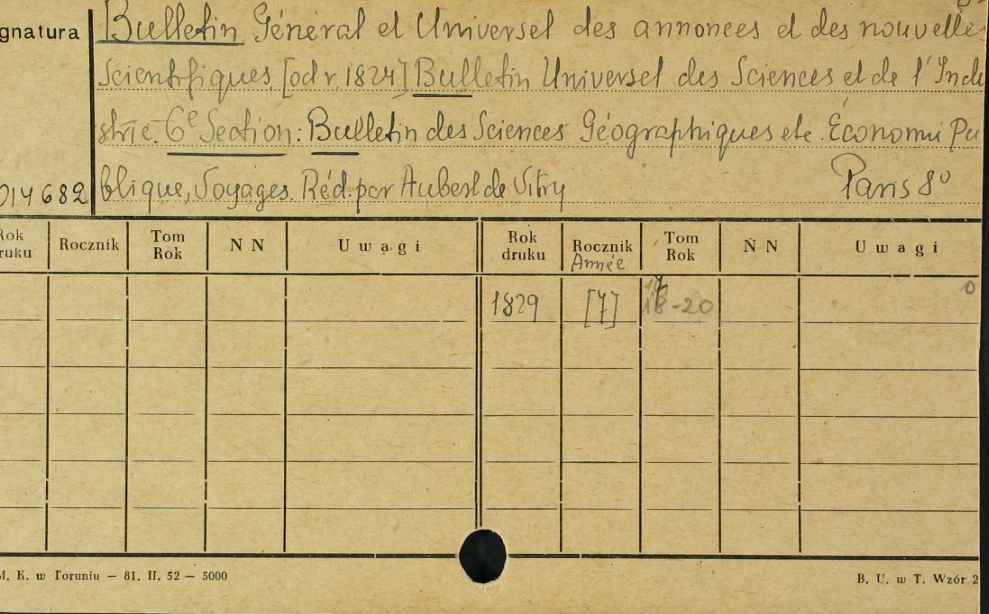 gnatura Bulletin Général et Universel des annonces et des nouvelle
Scientifiques, [od r. 1824] Bulletin Universel des Sciences et de l'Indu
strie. 6e Section: Bulletin des Sciences Géographiques etc. Économi Pu
014682 blique, Voyages. Réd. par Aubert de Vitry Paris 8o
Rok druku Rocznik Tom Rok N N U w a g i Rok druku Rocznik Année Tom Rok N N U w a g i
1829 [7] 18-20 0
M. K. w Toruniu — 81. II. 52 — 5000 B. U. w T. Wzór 2